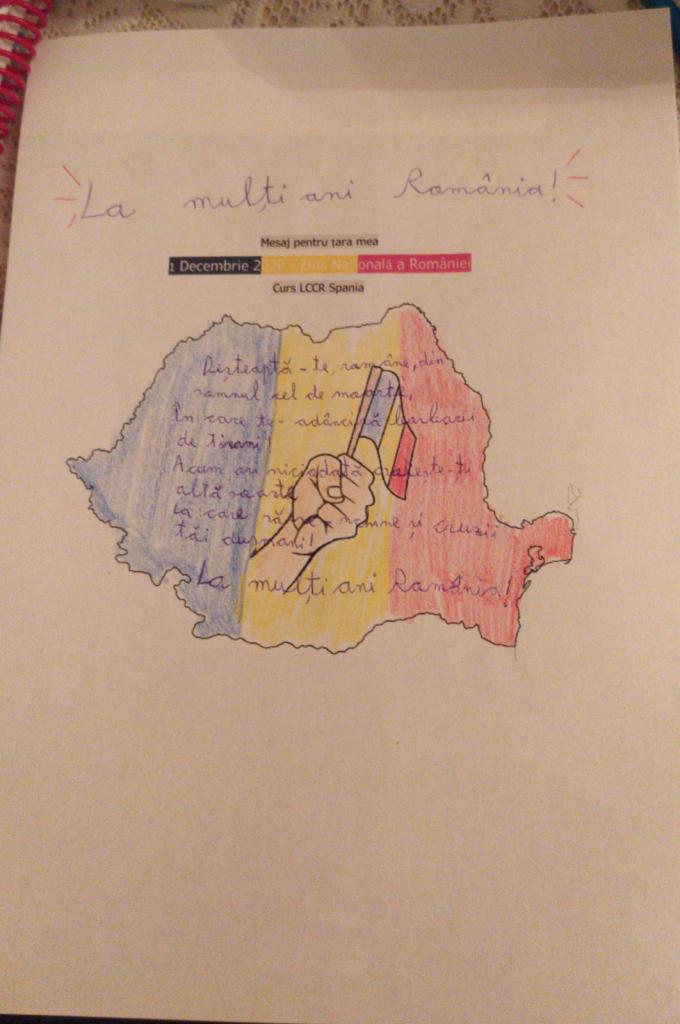 La mulți ani România!
Mesaj pentru țara mea
1 Decembrie 2020 - Ziua Națională a României
Curs LCCR Spania
Deșteaptă-te, române, din
somnul cel de moarte,
În care te-adânciră barbarii
de tirani!
Acum ori niciodată croiește-ți
altă soarte
La care să se-nchine și cruzii
tăi dușmani!
La mulți ani România!